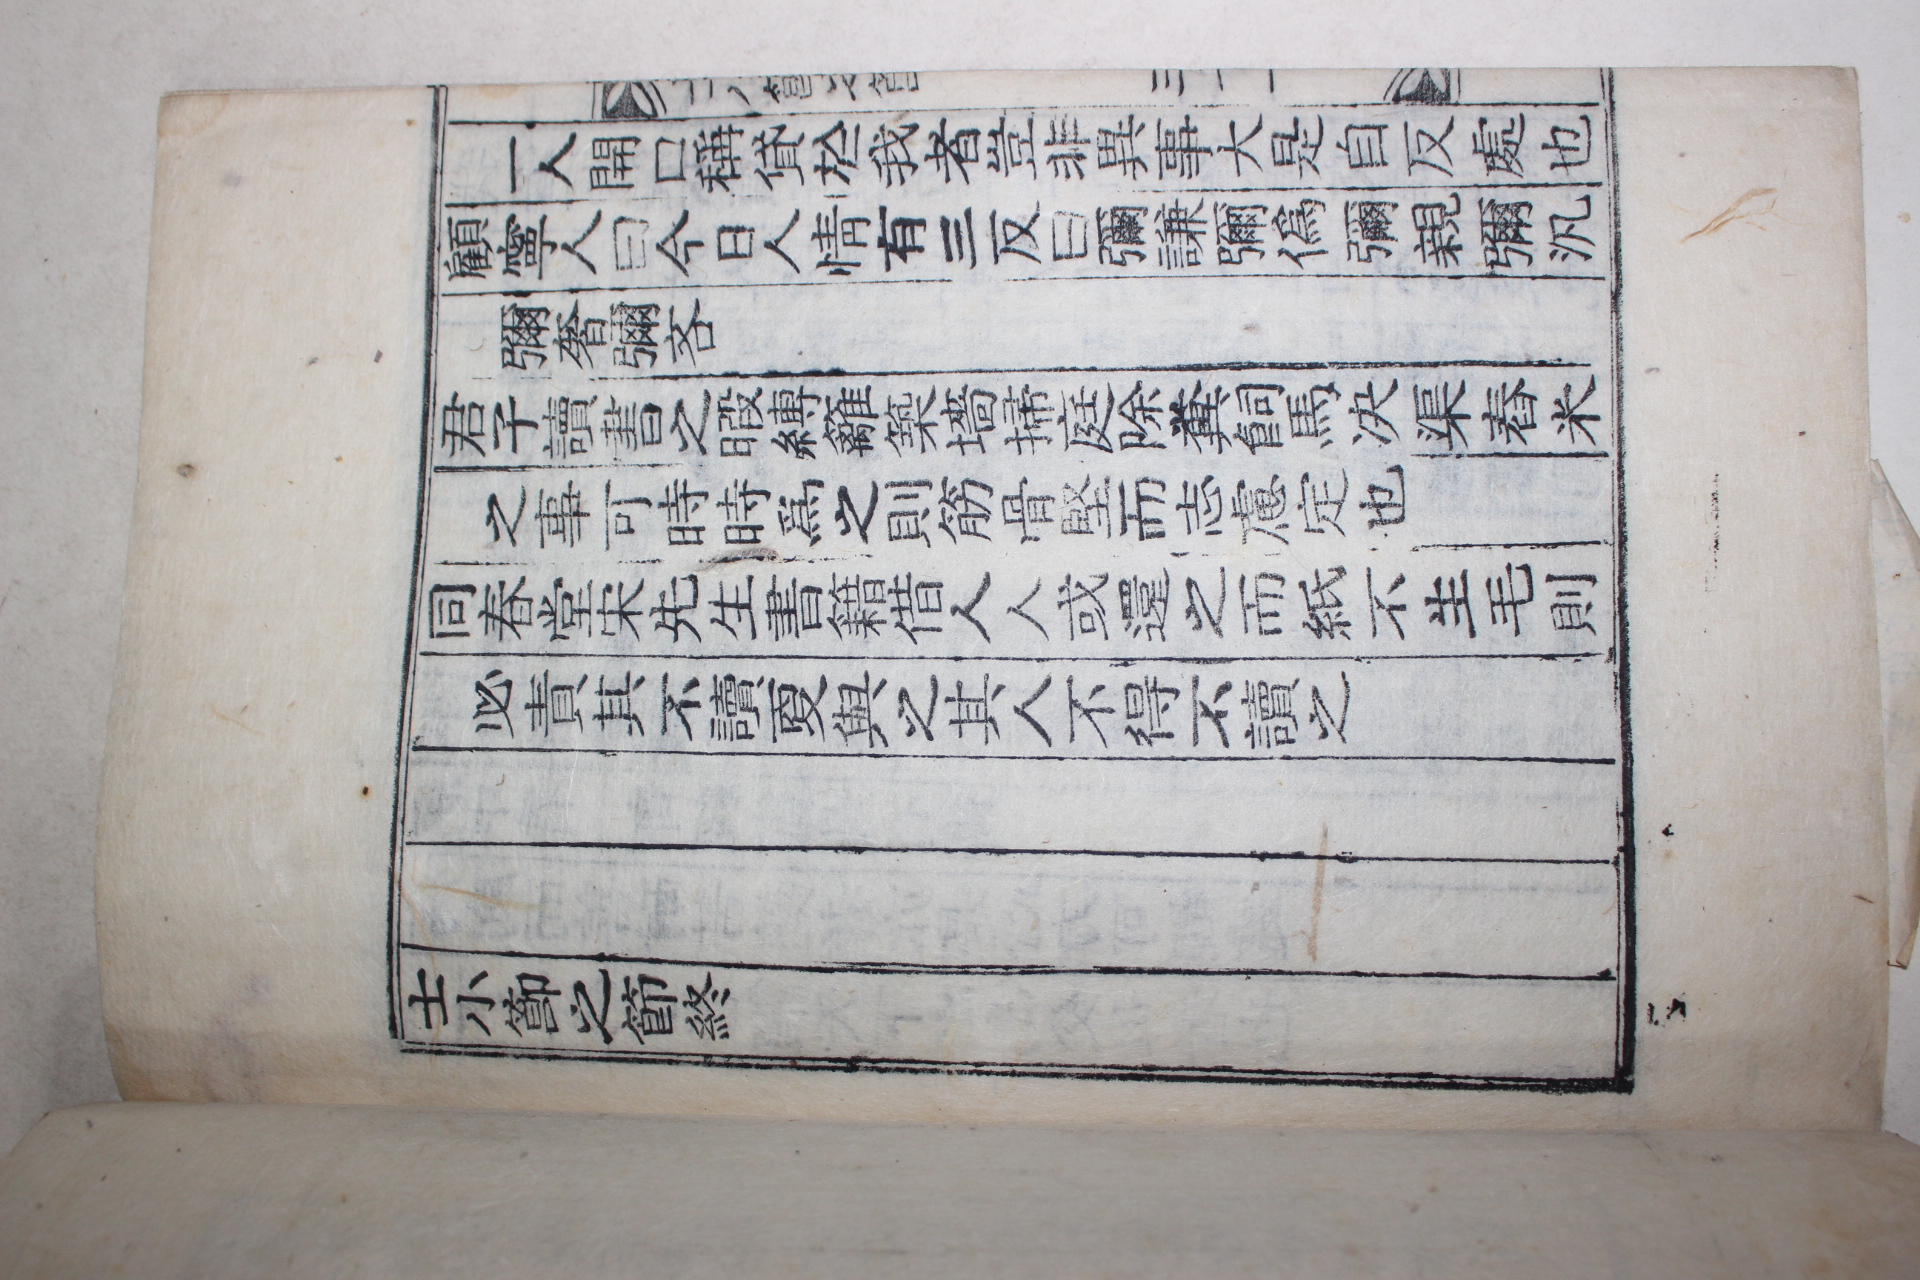 一人開口稱貸扵我者豈非異事大是自反處也
顧寧人曰今日人情有三反曰彌謙彌偽彌親彌汎
彌奢彌吝
君子讀書之暇縛籬築墻掃庭除糞飼馬决渠舂米
之事可時時爲之則筋骨堅而志慮定也
同春堂宋先生書籍借人人或還之而紙不生毛則
必責其不讀更與之其人不得不讀之
士小節之節終